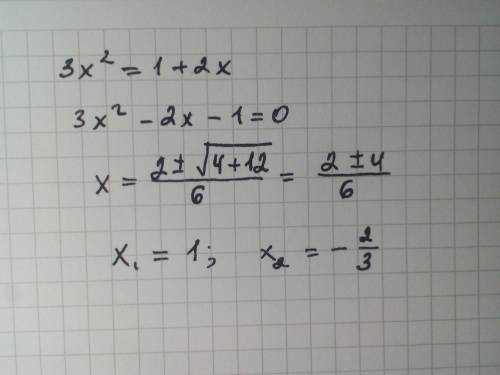 3x² = 1 + 2x
3x² - 2x - 1 = 0
x = (2 ± √(4+12))/6 = (2 ± 4)/6
x₁ = 1; x₂ = -2/3